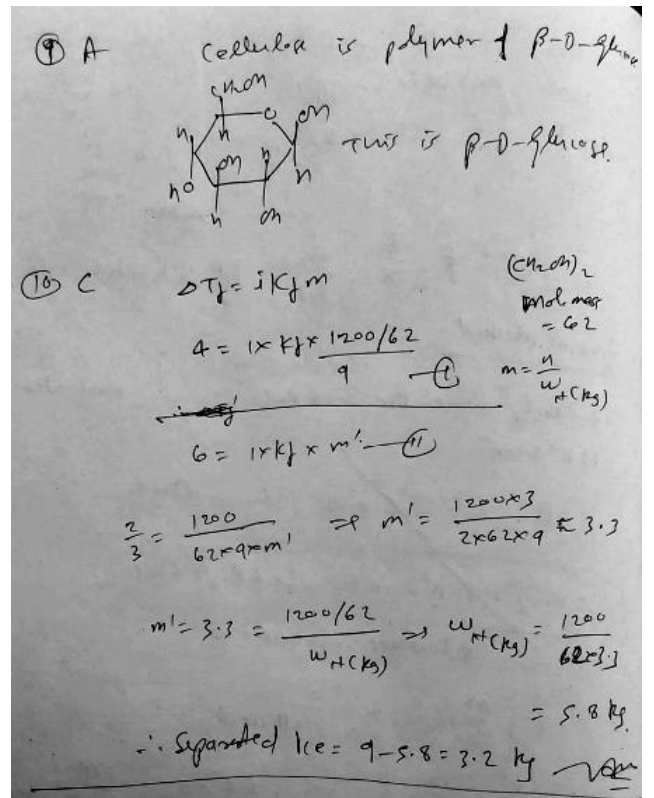 ⑨ A Cellulose is polymer of β-D-glucose
CH₂OH
H O OH
H
OH H
HO H
H OH
This is β-D-Glucose.
⑩ C ΔTf = i Kf m
(CH₂OH)₂
Mol. mass
= 62
4 = 1 × Kf × (1200/62)/9 — Ⓘ
m = n/W_H(kg)
6 = 1 × Kf × m' — Ⓘ Ⓘ
2/3 = 1200/(62×9×m') ⇒ m' = (1200×3)/(2×62×9) = 3.3
m' = 3.3 = (1200/62)/W_H(kg) ⇒ W_H(kg) = 1200/(62×3.3)
= 5.8 kg.
∴ Separated Ice = 9-5.8 = 3.2 kg